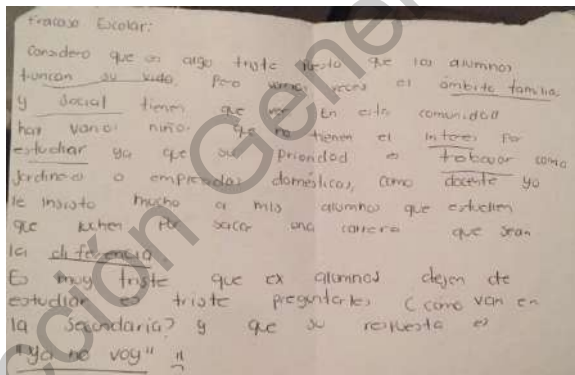 Fracaso Escolar:
Considero que es algo triste puesto que los alumnos
truncan su vida, Pero varias veces el ambito familiar
y Social tienen que ver En esta comunidad
hay varios niños que no tienen el Interes por
estudiar ya que su prioridad es trabajar como
Jardineros o empleadas domésticas, como docente yo
le insisto mucho a mis alumnos que estudien
que luchen por sacar una carrera que sean
la diferencia
Es muy triste que ex alumnos dejen de
estudiar es triste preguntarles ¿como van en
la Secundaria? y que su respuesta es
"Ya no voy"
cción Gener